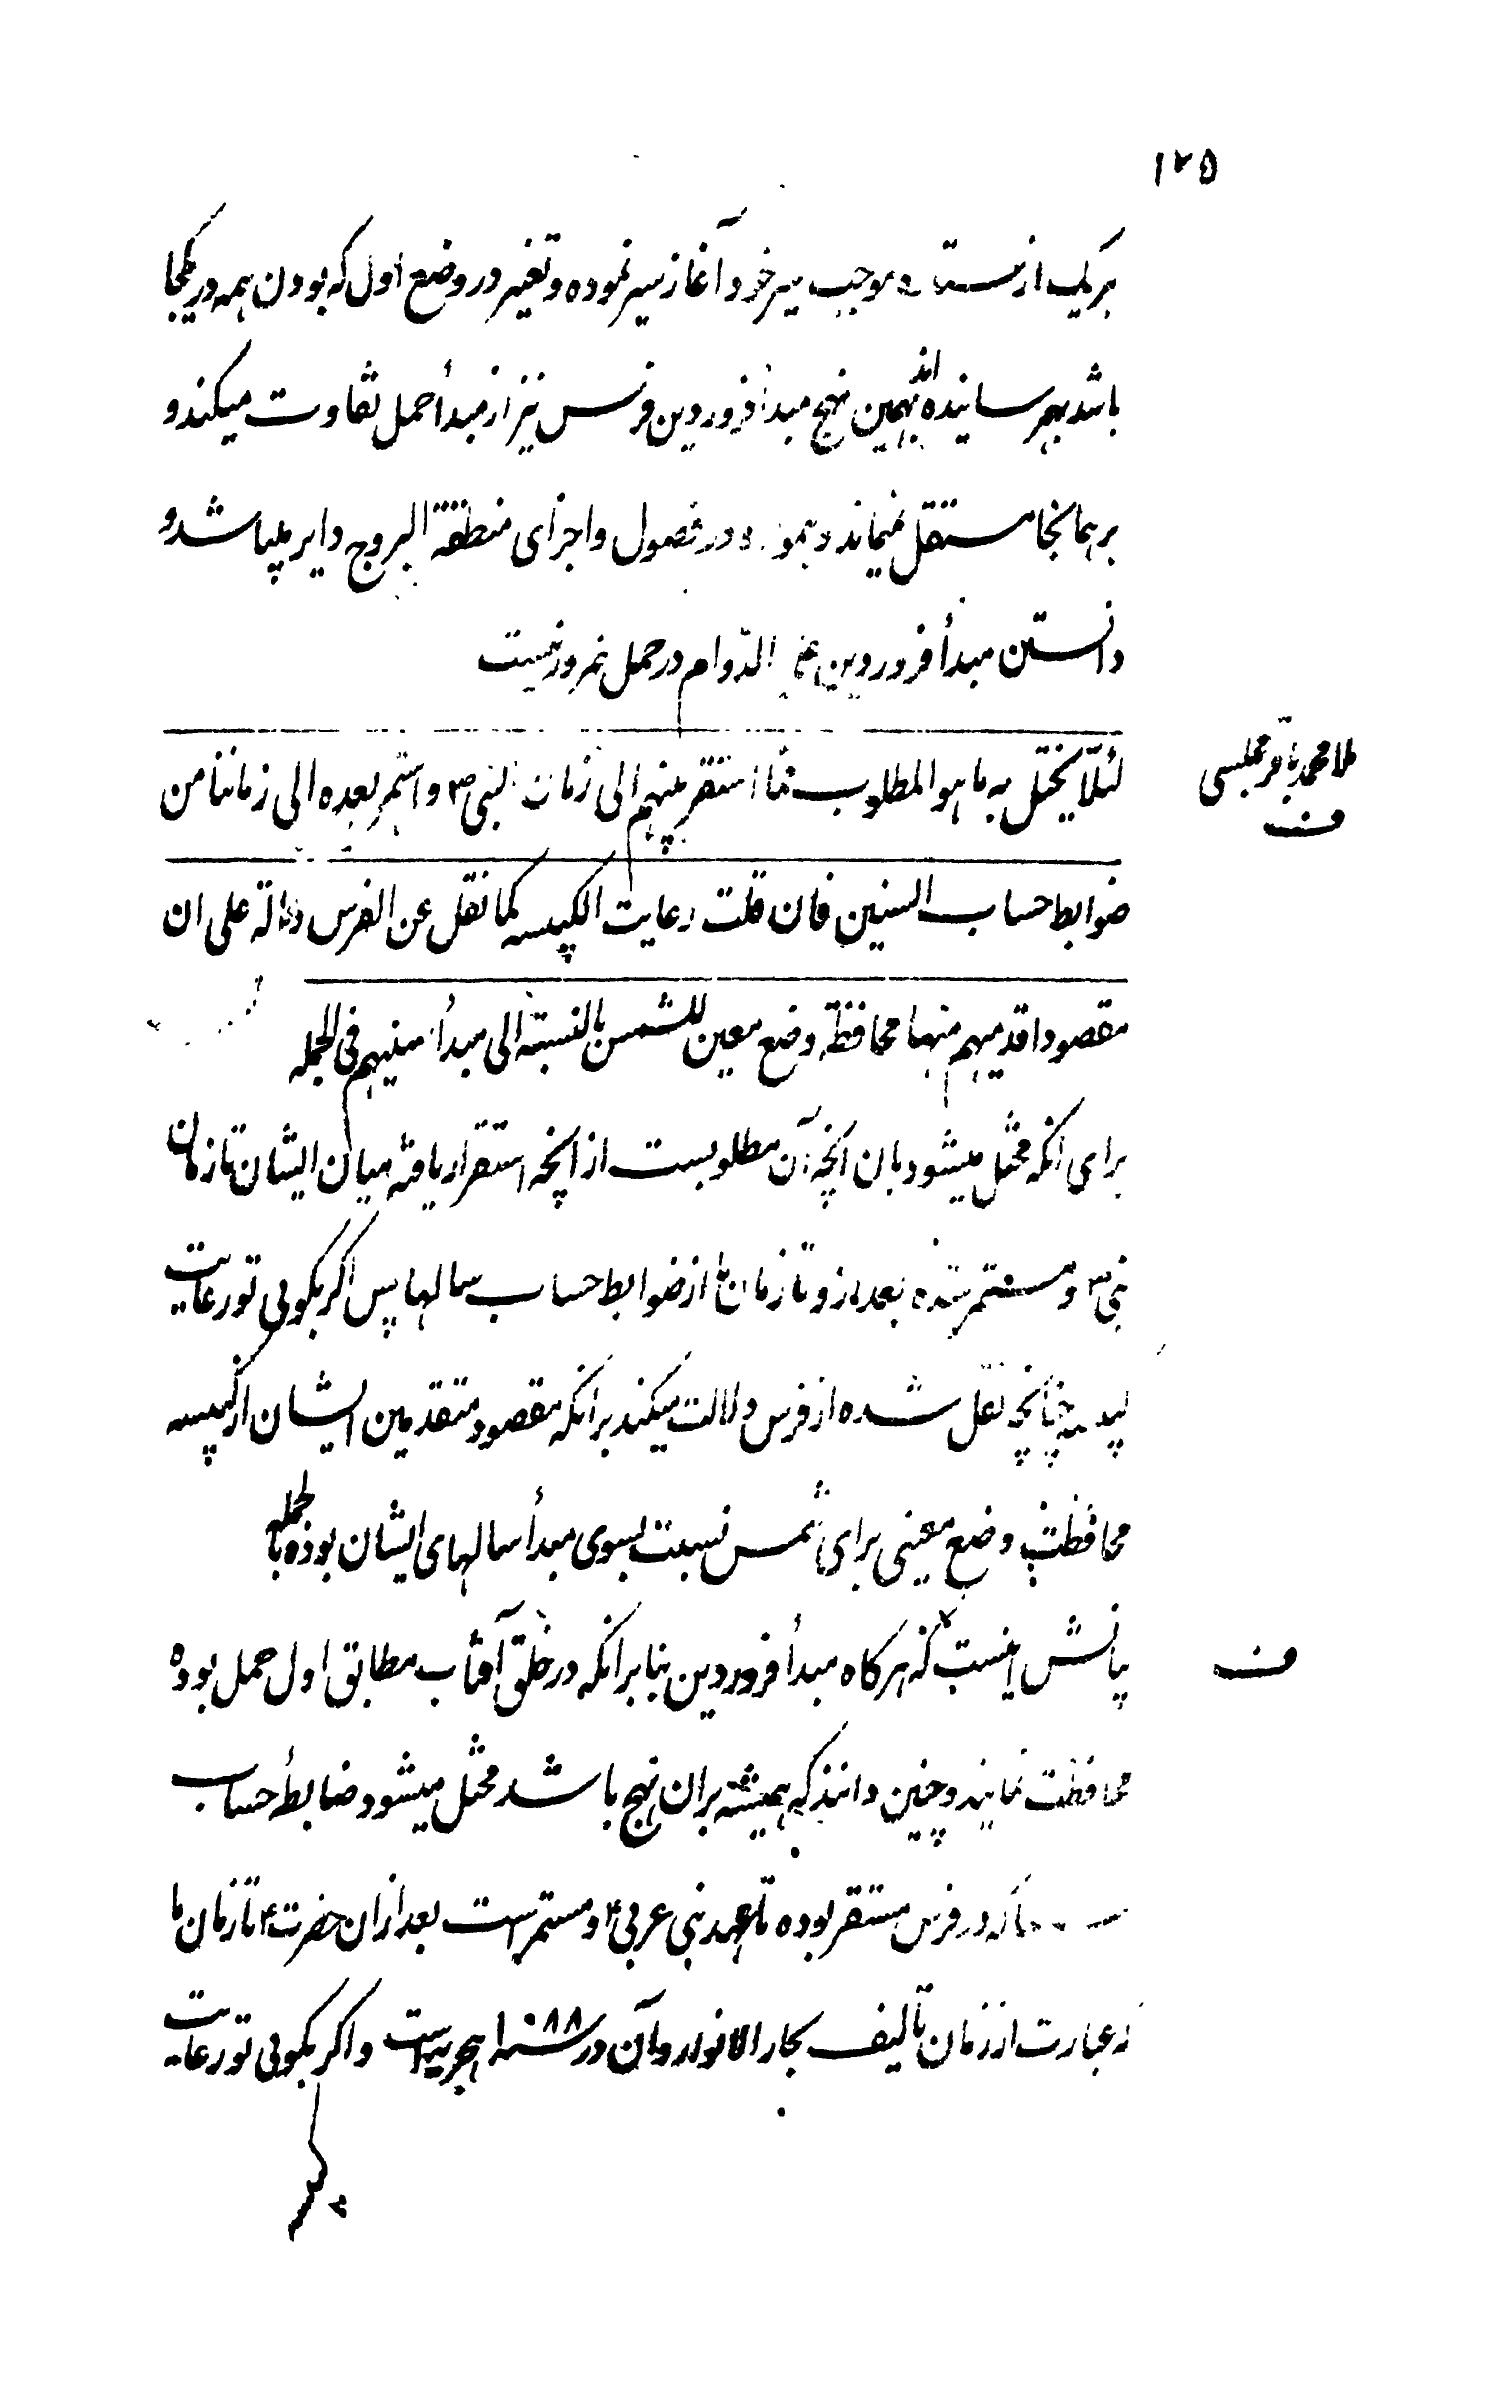 ۱۲۵
هریک از موجب سیر خود آغاز سیر نموده و تغیر در وضع اول که بودن همه در یکجا
باشد بهم رسانیده اند بهمین نهج مبدأ فروردین فرس نیز از مبدأ حمل تفاوت میکند و
بر همانجا مستقل نمیماند در فصول و اجزای منطقة البروج دایر میباشد و
دانستن مبدأ فروردین الدوام در حمل ضرور نیست
ملا محمد باقر مجلسی
لئلا یختل به ما هو المطلوب مما استقر بینهم الی زمان النبی ص و استمر بعده الی زماننا من
ضوابط حساب السنین فان قلت رعایت الکبیسه کما نقل عن الفرس دالة علی ان
مقصود اقدمیهم منها محافظة وضع معین للشمس بالنسبة الی مبدأ سنیهم فی الجمله
برای انکه مختل میشود بان انچه آن مطلوبست از انچه استقرار یافته میان ایشان تا زمان
نبی ص و مستمر شده بعد ازو تا زمان ما از ضوابط حساب سالها پس اکر بکویی تو رعایت
چنانچه نقل شده از فرس دلالت میکند بر انکه مقصود متقدمین ایشان از کبیسه
محافظت وضع معینی برای شمس نسبت بسوی مبدأ سالهای ایشان بوده بالجمله
بیانش اینست که هرکاه مبدأ فروردین بنا بر انکه در خلق آفتاب مطابق اول حمل بوده
محافظت نمایند و چنین دانند که همیشه بران نهج باشد مختل میشود ضابطهٔ حساب
در فرس مستقر بوده تا عهد نبی عربی ص و مستمر است بعد از ان حضرت ص تا زمان ما
عبارت از زمان تالیف بحار الانوار و آن در سنه ۱۰۸۸ هجریست و اکر بکویی تو رعایت